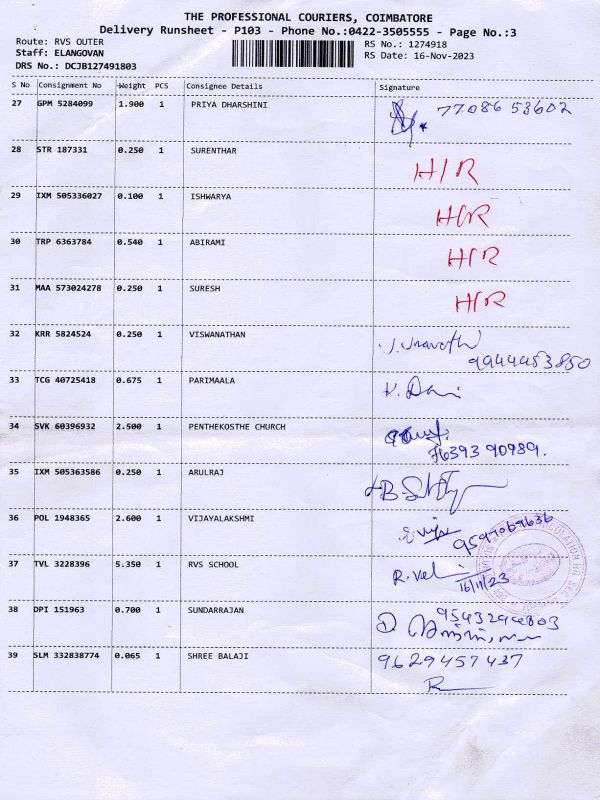 THE PROFESSIONAL COURIERS, COIMBATORE
Delivery Runsheet - P103 - Phone No.:0422-3505555 - Page No.:3
Route: RVS OUTER RS No.: 1274918
Staff: ELANGOVAN RS Date: 16-Nov-2023
DRS No.: DCJB127491803
S No Consignment No Weight PCS Consignee Details Signature
27 GPM 5284099 1.900 1 PRIYA DHARSHINI 77086 53602
28 STR 187331 0.250 1 SURENTHAR H/R
29 IXM 505336027 0.100 1 ISHWARYA H/R
30 TRP 6363784 0.540 1 ABIRAMI H/R
31 MAA 573024278 0.250 1 SURESH H/R
32 KRR 5824524 0.250 1 VISWANATHAN
9944453850
33 TCG 40725418 0.675 1 PARIMAALA
34 SVK 60396932 2.500 1 PENTHEKOSTHE CHURCH
76393 90989.
35 IXM 505363586 0.250 1 ARULRAJ
36 POL 1948365 2.600 1 VIJAYALAKSHMI
9597069636
37 TVL 3228396 5.350 1 RVS SCHOOL
16/11/23
38 DPI 151963 0.700 1 SUNDARRAJAN 9543294803
39 SLM 332838774 0.065 1 SHREE BALAJI 9629457437